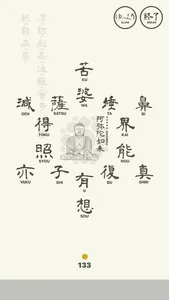 終了
苦
KU
婆
WA
減
GEN
薩
SATSU
埵
TA
鼻
BI
阿弥陀如来
得
TOKU
界
KAI
照
SYOU
能
NOU
亦
YAKU
子
SHI
有
U
復
BU
真
SHIN
想
SOU
133